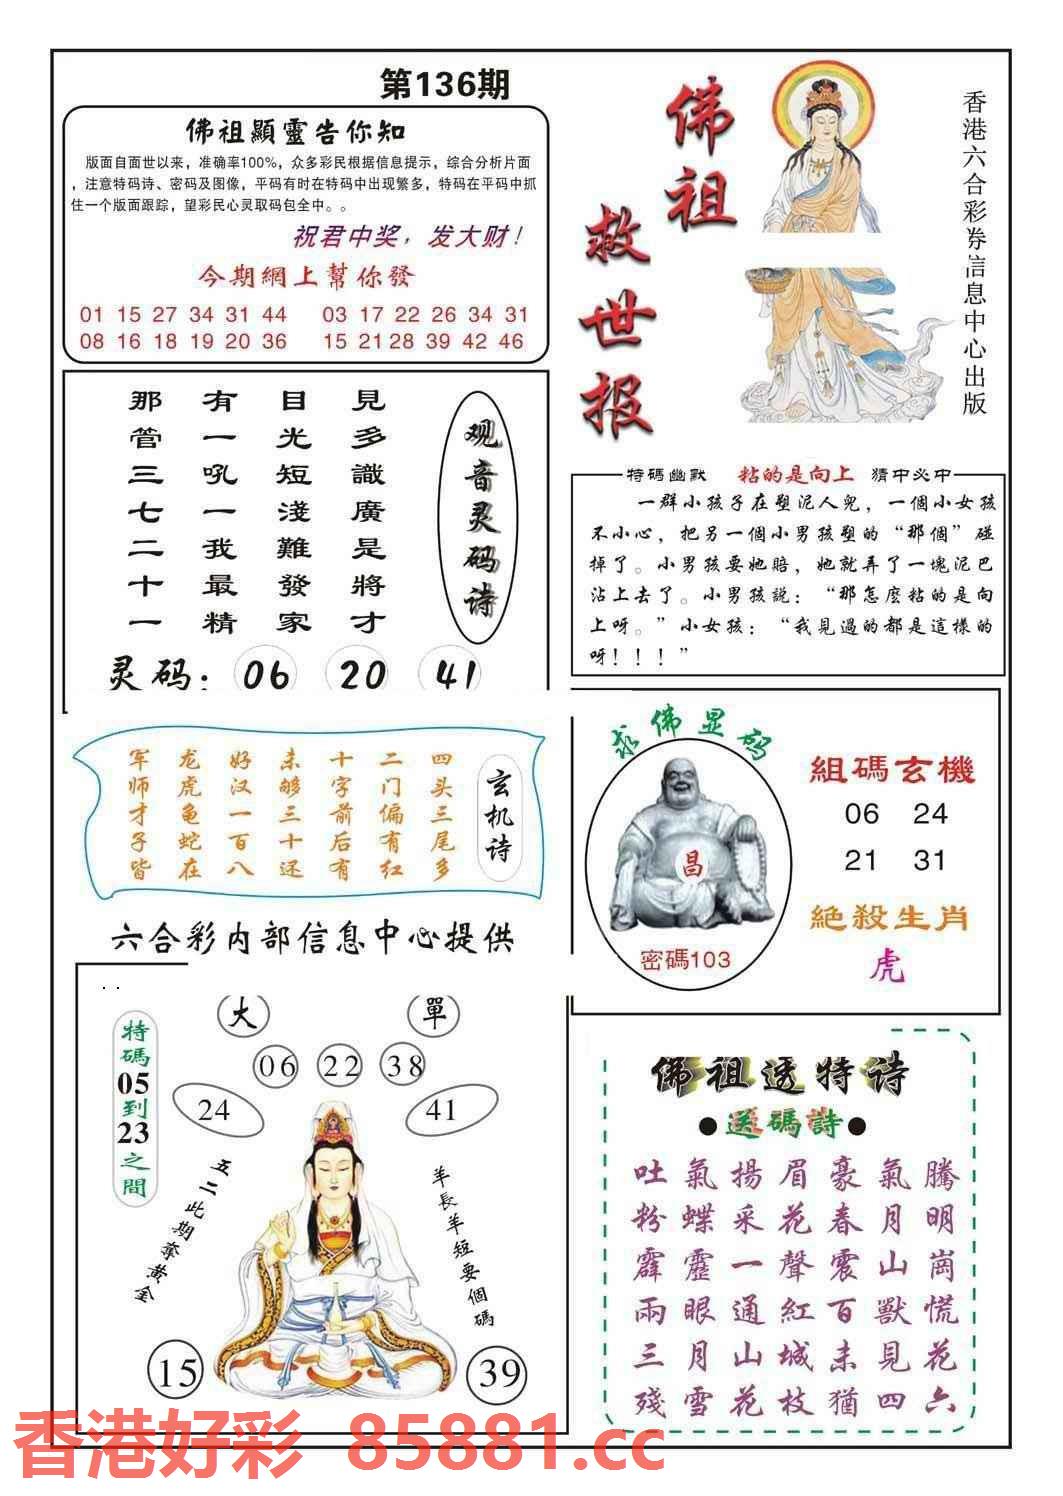 第136期
佛祖顯靈告你知
版面自面世以来，准确率100%，众多彩民根据信息提示，综合分析片面
，注意特码诗、密码及图像，平码有时在特码中出现繁多，特码在平码中抓
住一个版面跟踪，望彩民心灵取码包全中。。
祝君中奖，发大财！
今期網上幫你發
01 15 27 34 31 44 03 17 22 26 34 31
08 16 18 19 20 36 15 21 28 39 42 46
佛祖
救世报
香港六合彩券信息中心出版
观音灵码诗
見多識廣是將才
目光短淺難發家
有一吼一我最精
那管三七二十一
灵码：06 20 41
特碼幽默 粘的是向上 猜中必中
一群小孩子在塑泥人兒，一個小女孩
不小心，把另一個小男孩塑的“那個”碰
掉了。小男孩要她賠，她就弄了一塊泥巴
沾上去了。小男孩說：“那怎麼粘的是向
上呀。”小女孩：“我見過的都是這樣的
呀！！！”
玄机诗
四头三尾多
二门偏有红
十字前后有
未够三十还
好汉一百八
龙虎龟蛇在
军师才子皆
六合彩内部信息中心提供
求佛显码
昌
密碼103
組碼玄機
06 24
21 31
絕殺生肖
虎
. .
大 單
06 22 38
24 41
特碼05到23之間
五二此期奪黃金
羊長羊短要個碼
15 39
佛祖透特诗
●送碼詩●
吐氣揚眉豪氣騰
粉蝶采花春月明
霹靂一聲震山崗
兩眼通紅百獸慌
三月山城未見花
殘雪花枝猶四六
香港好彩 85881.cc